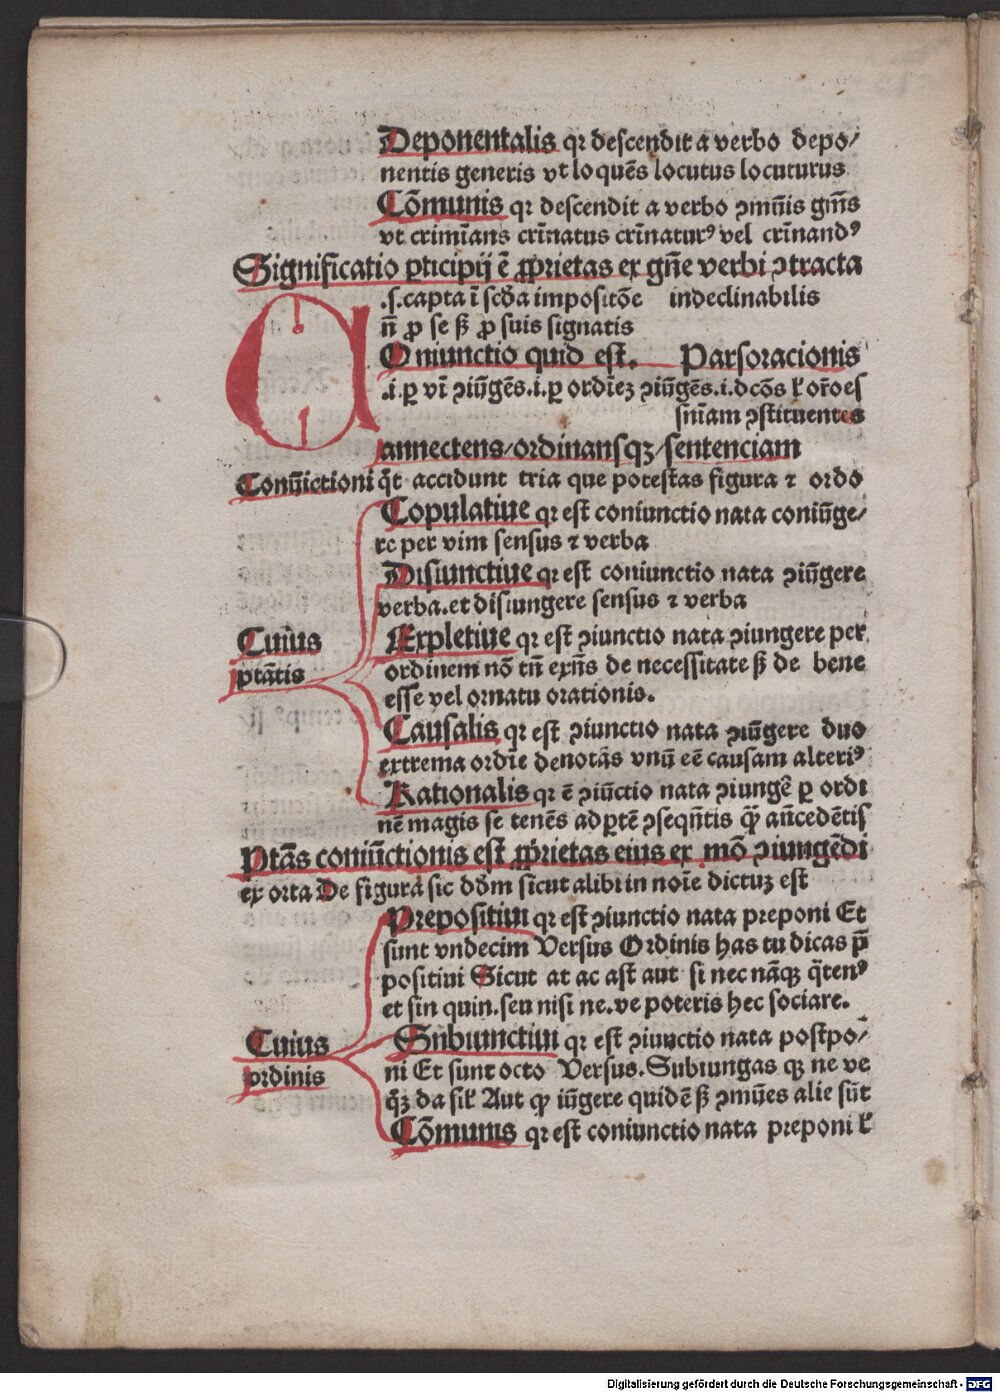 Deponentalis qꝛ descendit a verbo depo/
nentis generis vt loquēs locutus locuturus
Cōmunis qꝛ descendit a verbo ꝯmūis gn̄is
vt crimīans crīnatus crīnaturꝰ vel crīnandꝰ
Significatio ꝑticipij ē ꝓprietas ex gn̄e verbi ꝯtracta
.s.capta ī scd̄a impositōe indeclinabilis
n̄ ꝓ se sꝫ ꝓ suis signatis
COniunctio quid est. Parsoracionis
.i.ꝑ vī ꝯiūgēs.i.ꝑ ordīeꝫ ꝯiūgēs.i.dcōs ł or̄oes
sn̄iam ꝯstituentes
annectens/ordinansqꝫ/sentenciam
Conūictioni q̄t accidunt tria que potestas figura ⁊ ordo
Copulatiue qꝛ est coniunctio nata coniūge/
re per vim sensus ⁊ verba
Disiunctiue qꝛ est coniunctio nata ꝯiūgere
verba.et disiungere sensus ⁊ verba
Cuiꝰus
ptātis
Expletiue qꝛ est ꝯiunctio nata ꝯiungere per
ordinem nō tn̄ exn̄s de necessitate sꝫ de bene
esse vel ornatu orationis.
Causalis qꝛ est ꝯiunctio nata ꝯiūgere duo
extrema ordīe denotās vnū eē causam alteriꝰ
Rationalis qꝛ ē ꝯiūctio nata ꝯiungē ꝑ ordi
nē magis se tenēs ad ꝑtē ꝯseqn̄tis qꝫ̄ an̄cedētis
Ptās coniūctionis est ꝓprietas eius ex mō ꝯiungēdi
ex orta De figura sic dd̄m sicut alibi in noīe dictuꝫ est
Prepositiui qꝛ est ꝯiunctio nata preponi Et
sunt vndecim Versus Ordinis has tu dicas p̄
positiui Sicut at ac ast aut si nec nāqꝫ q̄tenꝰ
et sin quin.seu nisi ne.ve poteris hec sociare.
Cuius
ordinis
Subiunctiui qꝛ est ꝯiunctio nata postpo/
ni Et sunt octo Versus.Subiungas qꝫ ne ve
q̄ꝫ da sił Aut qꝫ iūgere quidē sꝫ ꝯmūes alie sūt
Cōmunis qꝛ est coniunctio nata preponi ł
Digitalisierung gefördert durch die Deutsche Forschungsgemeinschaft - DFG